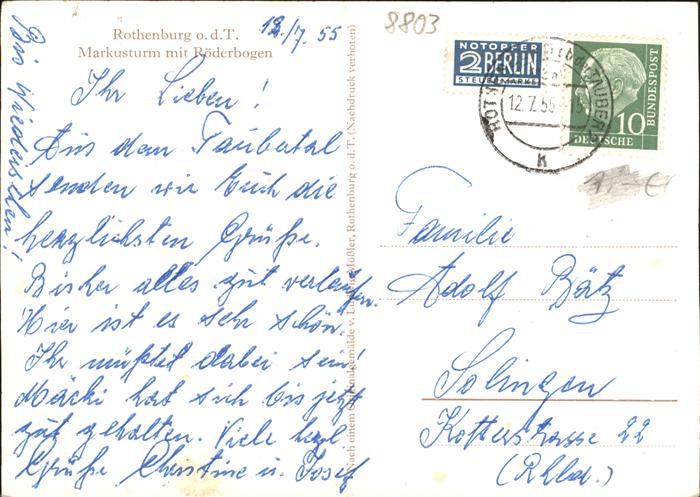 Rothenburg o.d.T.
Markusturm mit Röderbogen
12./7. 55
8803
Ihr Lieben!
Aus dem Taubertal
senden wir Euch die
herzlichsten Grüße.
Bisher alles gut verlaufen.
Hier ist es sehr schön.
Ihr müßtet dabei sein!
Mäcki hat sich bis jetzt
gut gehalten. Viele herzl
Grüße Christine u. Josef
Bis Wiedersehen!
Nach einem Originalgemälde v. Ludwig Mößler, Rothenburg o.d.T. (Nachdruck verboten)
NOTOPFER
2 BERLIN
STEUERMARKE
12.7.55
TAUBER
k
10
DEUTSCHE
BUNDESPOST
1,- €
Familie
Adolf Bätz
Solingen
Kotterstrasse 22
(Rhld.)